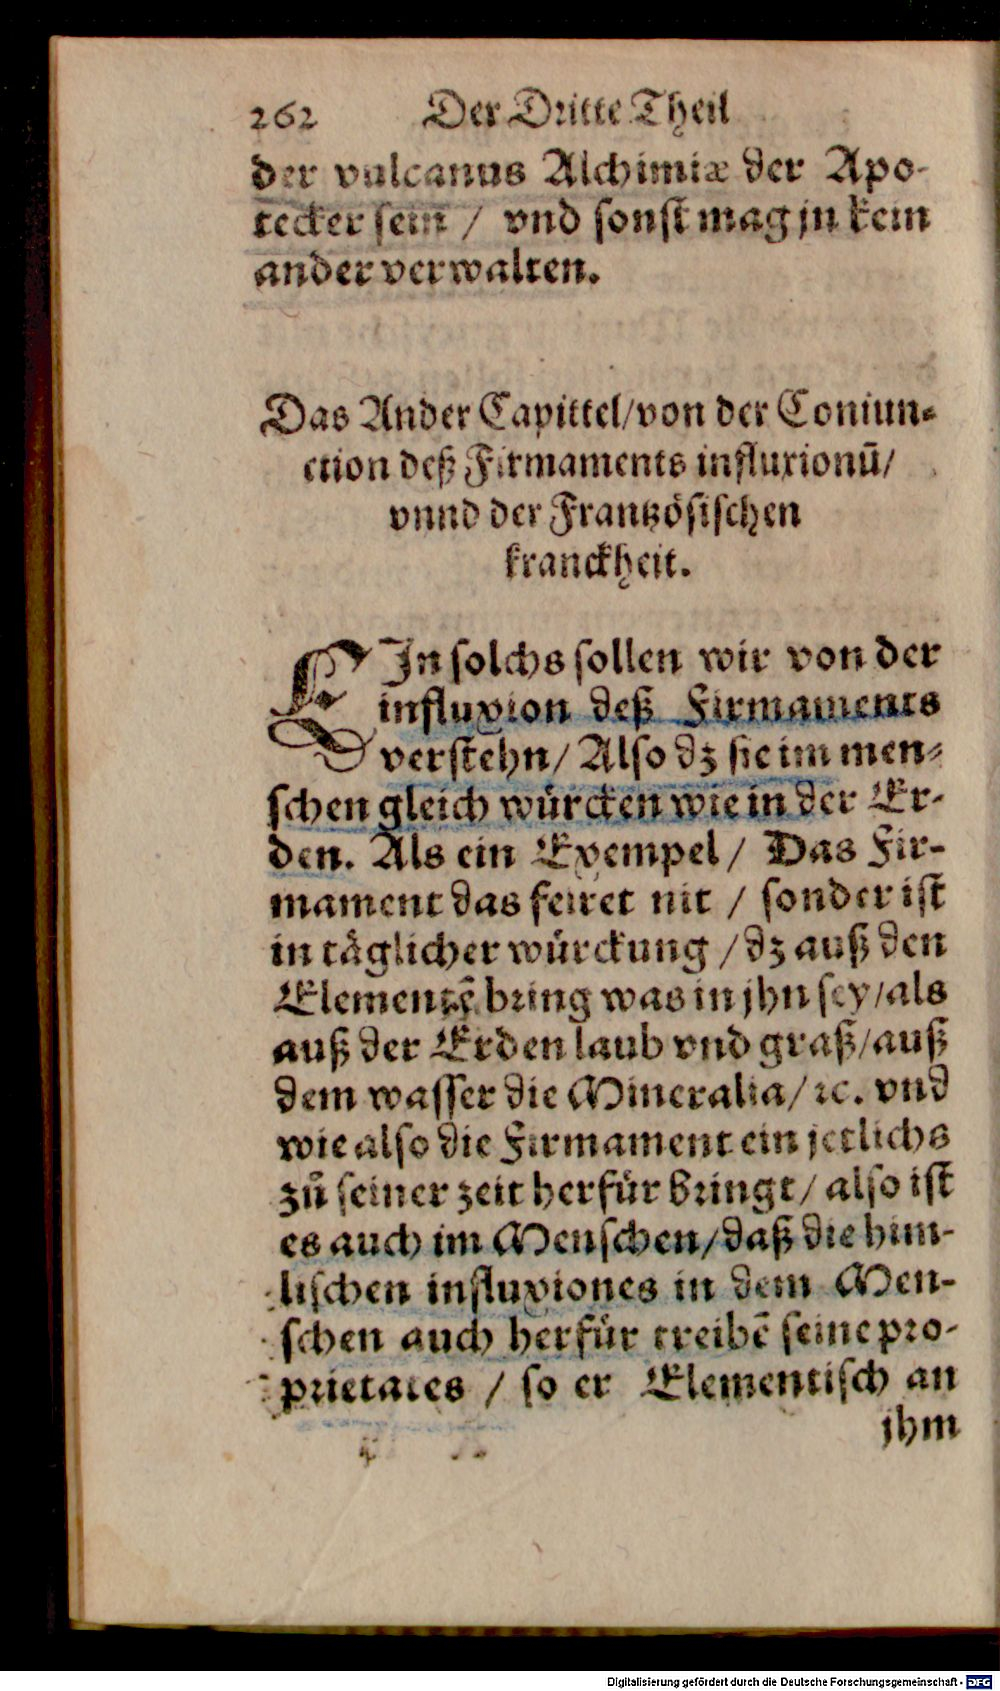 262 Der Dritte Theil
der vulcanus Alchimiæ der Apo-
tecker sein / vnd sonst mag jn kein
ander verwalten.
Das Ander Capittel/von der Coniun-
ction deß Firmaments influxionū/
vnnd der Frantzösischen
kranckheit.
EIn solchs sollen wir von der
influxion deß Firmaments
verstehn/ Also dz sie im men-
schen gleich würcken wie in der Er-
den. Als ein Exempel / Das Fir-
mament das feiret nit / sonder ist
in täglicher würckung / dz auß den
Elementē bring was in jhn sey/als
auß der Erden laub vnd graß/auß
dem wasser die Mineralia/ ꝛc. vnd
wie also die Firmament ein jetlichs
zů seiner zeit herfür bringt / also ist
es auch im Menschen/daß die him-
lischen influxiones in dem Men-
schen auch herfür treibē seine pro-
prietates / so er Elementisch an
jhm
Digitalisierung gefördert durch die Deutsche Forschungsgemeinschaft - DFG